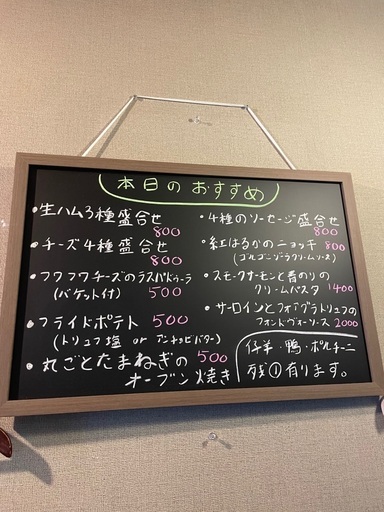 本日のおすすめ
・生ハム3種盛合せ
800
・チーズ4種盛合せ
800
・フワフワチーズのラスパドゥーラ
(バケット付) 500
・フライドポテト 500
(トリュフ塩 or アンチョビバター)
・丸ごとたまねぎの 500
オーブン焼き
・4種のソーセージ盛合せ
800
・紅はるかのニョッキ 800
(ゴルゴンゾーラクリームソース)
・スモークサーモンと青のりの
クリームパスタ 1400
・サーロインとフォアグラトリュフの
フォンドヴォーソース 2000
仔羊・鴨・ポルチーニ
残①有ります。